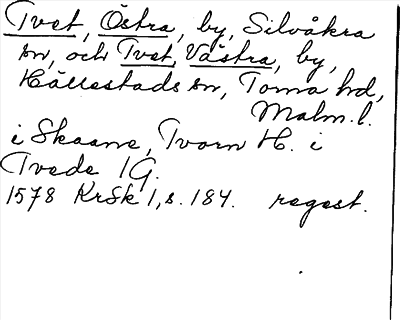 Tvet, Östra, by, Silvåkra
sn, och Tvet, Västra, by,
Hällestads sn, Torna hd,
Malm. l.
i Skaane, Tvorn H. i
Tvede 1 G.
1578 KrSk 1, s. 184. regest.